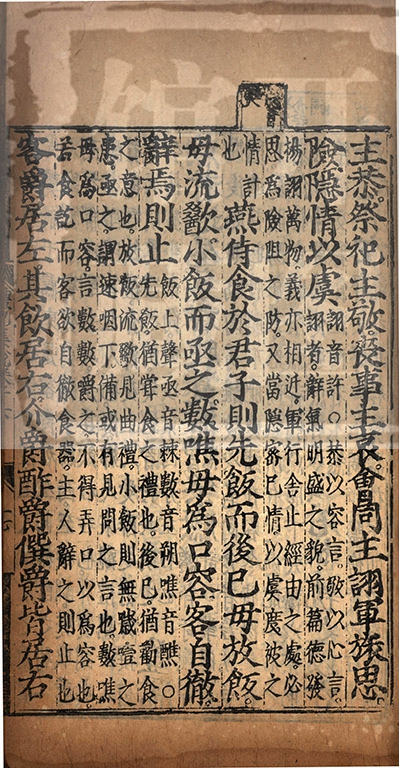 主恭。祭祀主敬。喪事主哀。會同主詡。軍旅思
險。隱情以虞
詡音許。○恭以容言。敬以心言。
詡者。辭氣明盛之貌。前篇德發
揚詡萬物。義亦相近。軍行舍止經由之處。必
思為險阻之防。又當隱密己情。以虞度彼之
情計
也
燕侍食於君子則先飯而後已毋放飯。
毋流歠。小飯而亟之。數噍毋為口容。客自徹。
辭焉則止
飯上聲。亟音棘。數音朔。噍音醮。○
先飯。猶嘗食之禮也。後已。猶勸食
之意也。放飯流歠。見曲禮。小飯則無噦噎之
患。亟之。謂速咽下。備或有見問之言也。數噍
毋為口容。言數數嚼之。不得弄口以為容也。
若食訖而客欲自徹食器。主人辭之則止也
客爵居左其飲居右介爵酢爵僎爵皆居右